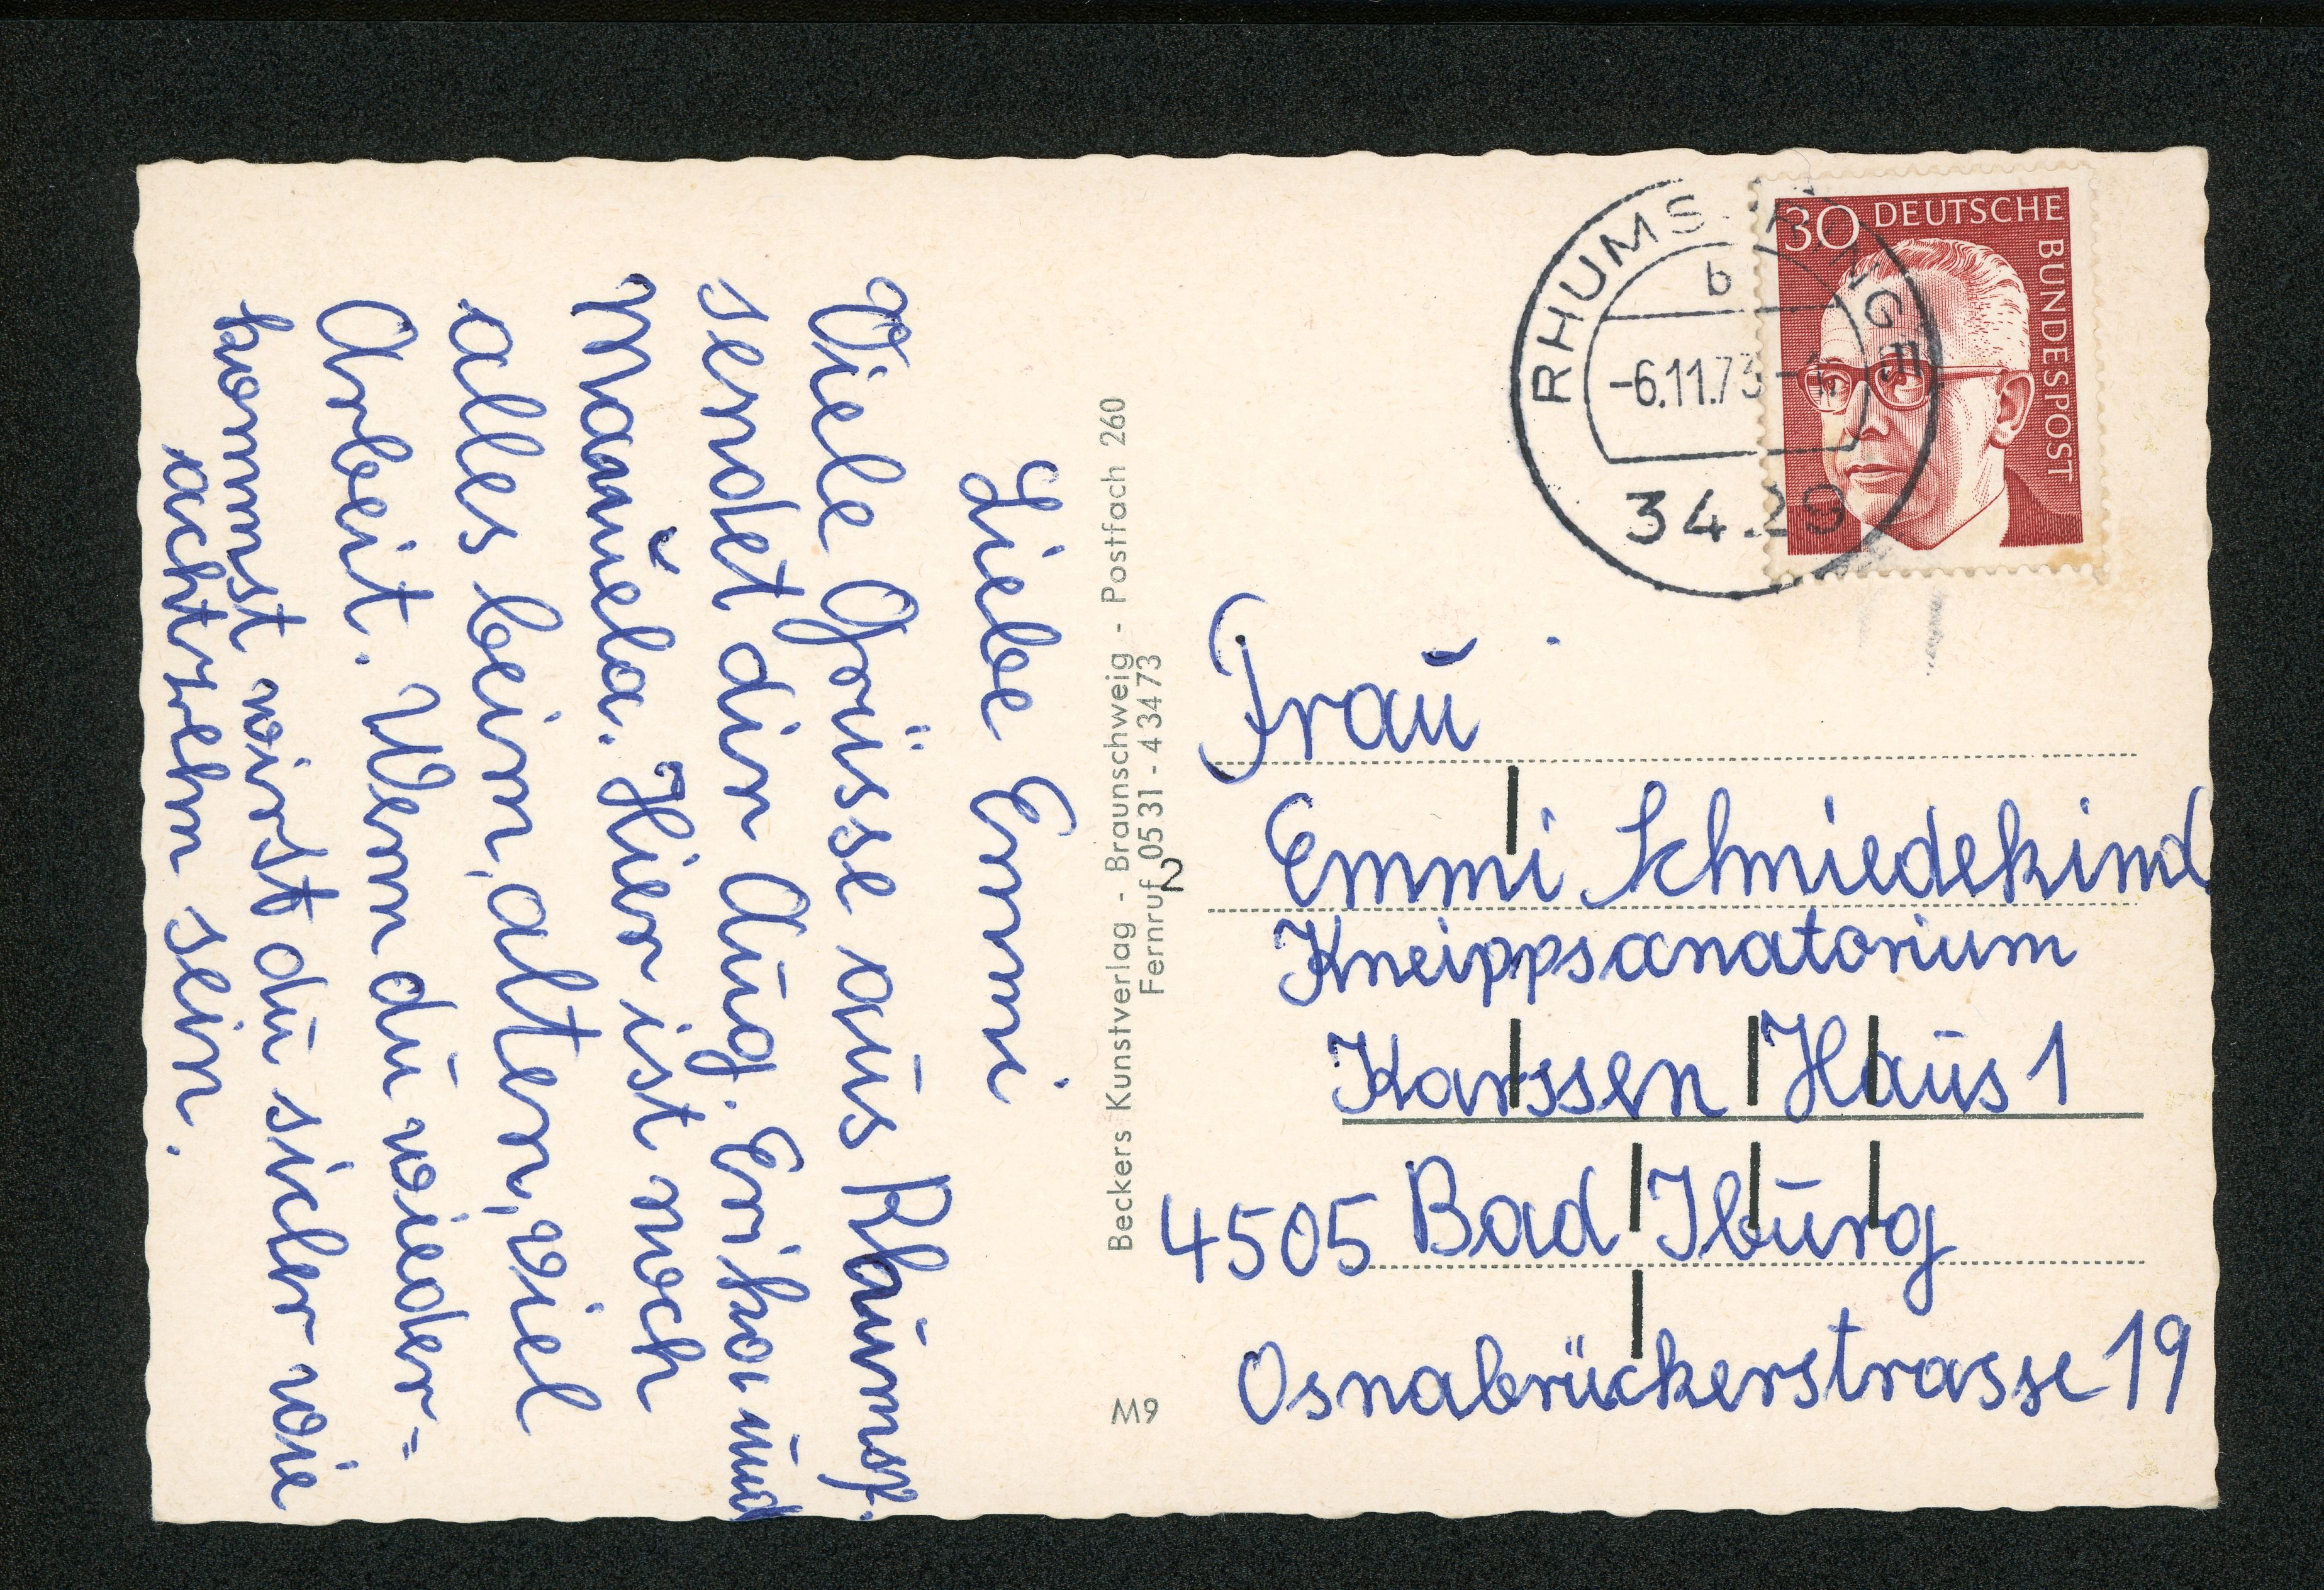 Liebe Emmi
Viele Grüsse aus Rhümsp.
sendet dir Aug. Erika und
Manuela. Hier ist noch
alles beim, alten, viel
Arbeit. Wenn du wieder=
kommst wirst du sicher wie
achtzehn sein.
Beckers Kunstverlag - Braunschweig - Postfach 260
Fernruf 05 31 - 4 34 73
2
M9
30 DEUTSCHE BUNDESPOST
RHUMSPRINGE
b
-6.11.73-
3429
Frau
Emmi Schmiedekind
Kneippsanatorium
Kassen Haus 1
4505 Bad Iburg
Osnabrückerstrasse 19